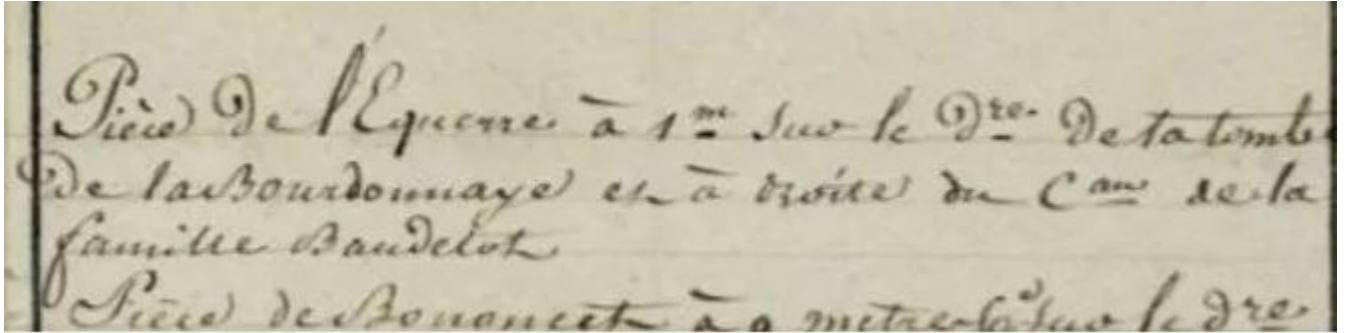 Pièce De l'Equerre à 1m sur le Dre. De la tombe
De la Bourdonnaye et à droite du Cau de la
famille Baudelot
Pièce de à 9 metres sur le dre.